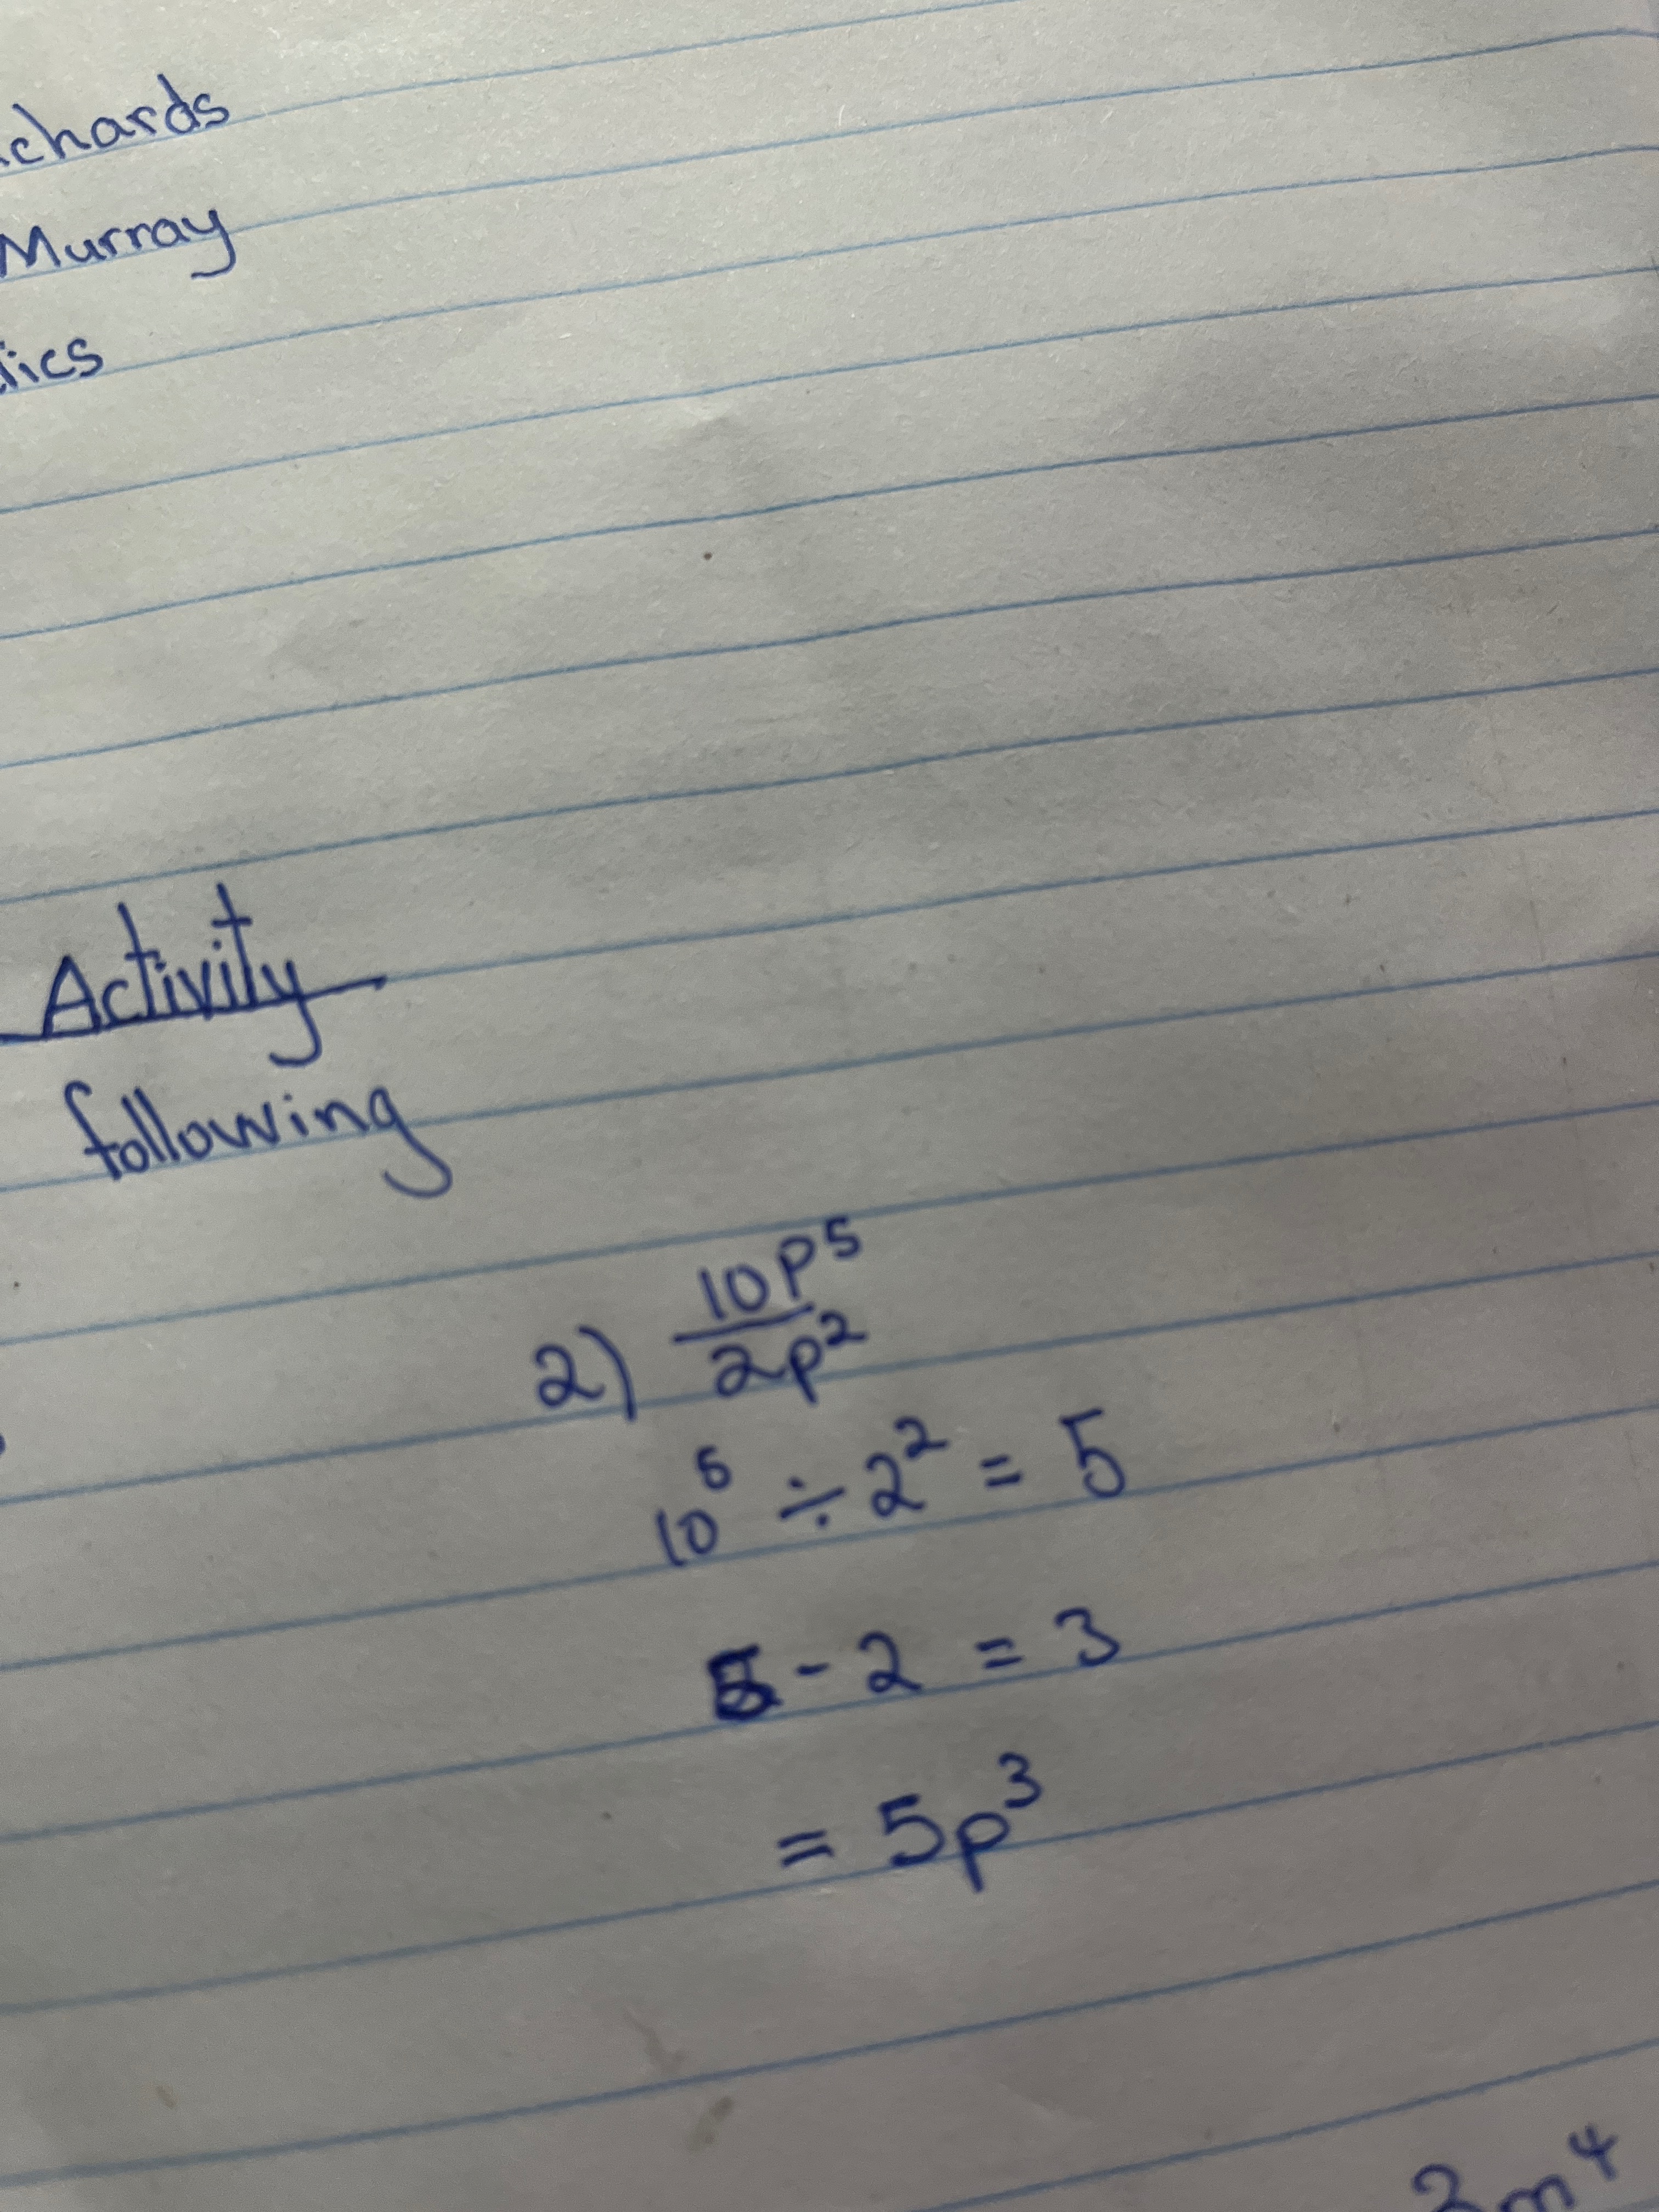 chards
Murray
tics
Activity
following
2) 10p⁵
2p²
10⁵ ÷ 2² = 5
5 - 2 = 3
= 5p³
3m⁴